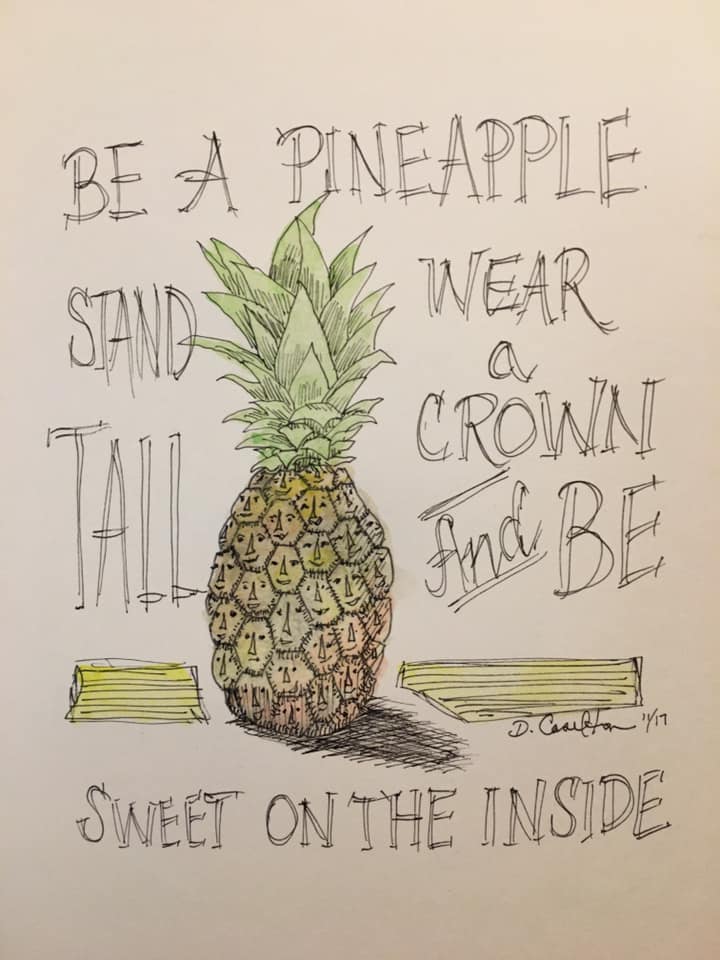 BE A PINEAPPLE
STAND
TALL
WEAR
a
CROWN
And BE
SWEET ON THE INSIDE
D. 11/17